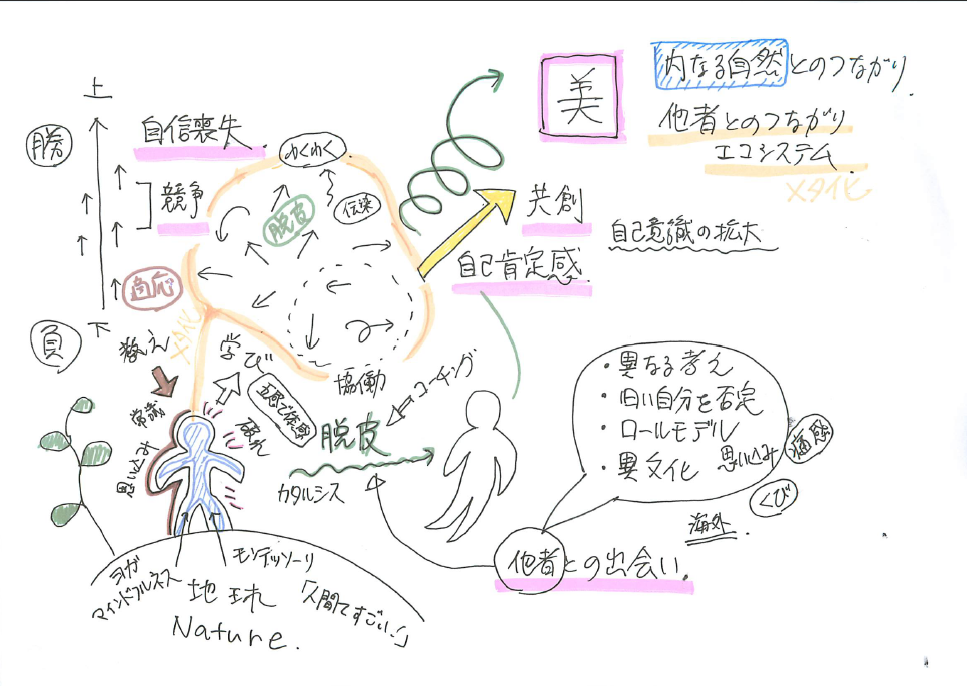 上
勝
自信喪失
競争
適応
負
下
わくわく
脱皮
伝染
美
内なる自然とのつながり.
他者とのつながり
エコシステム.
メタ化
共創
自己意識の拡大
自己肯定感.
教え
メタ化
学び
五感で体感
協働
コーチング
常識
思い込み
脱皮
カタルシス
・異なる考え
・旧い自分を否定
・ロールモデル
・異文化
思い込み
痛感
くび
海外.
他者との出会い.
ヨガ
マインドフルネス
モンテッソーリ
地球
「人間てすごい!」
Nature.